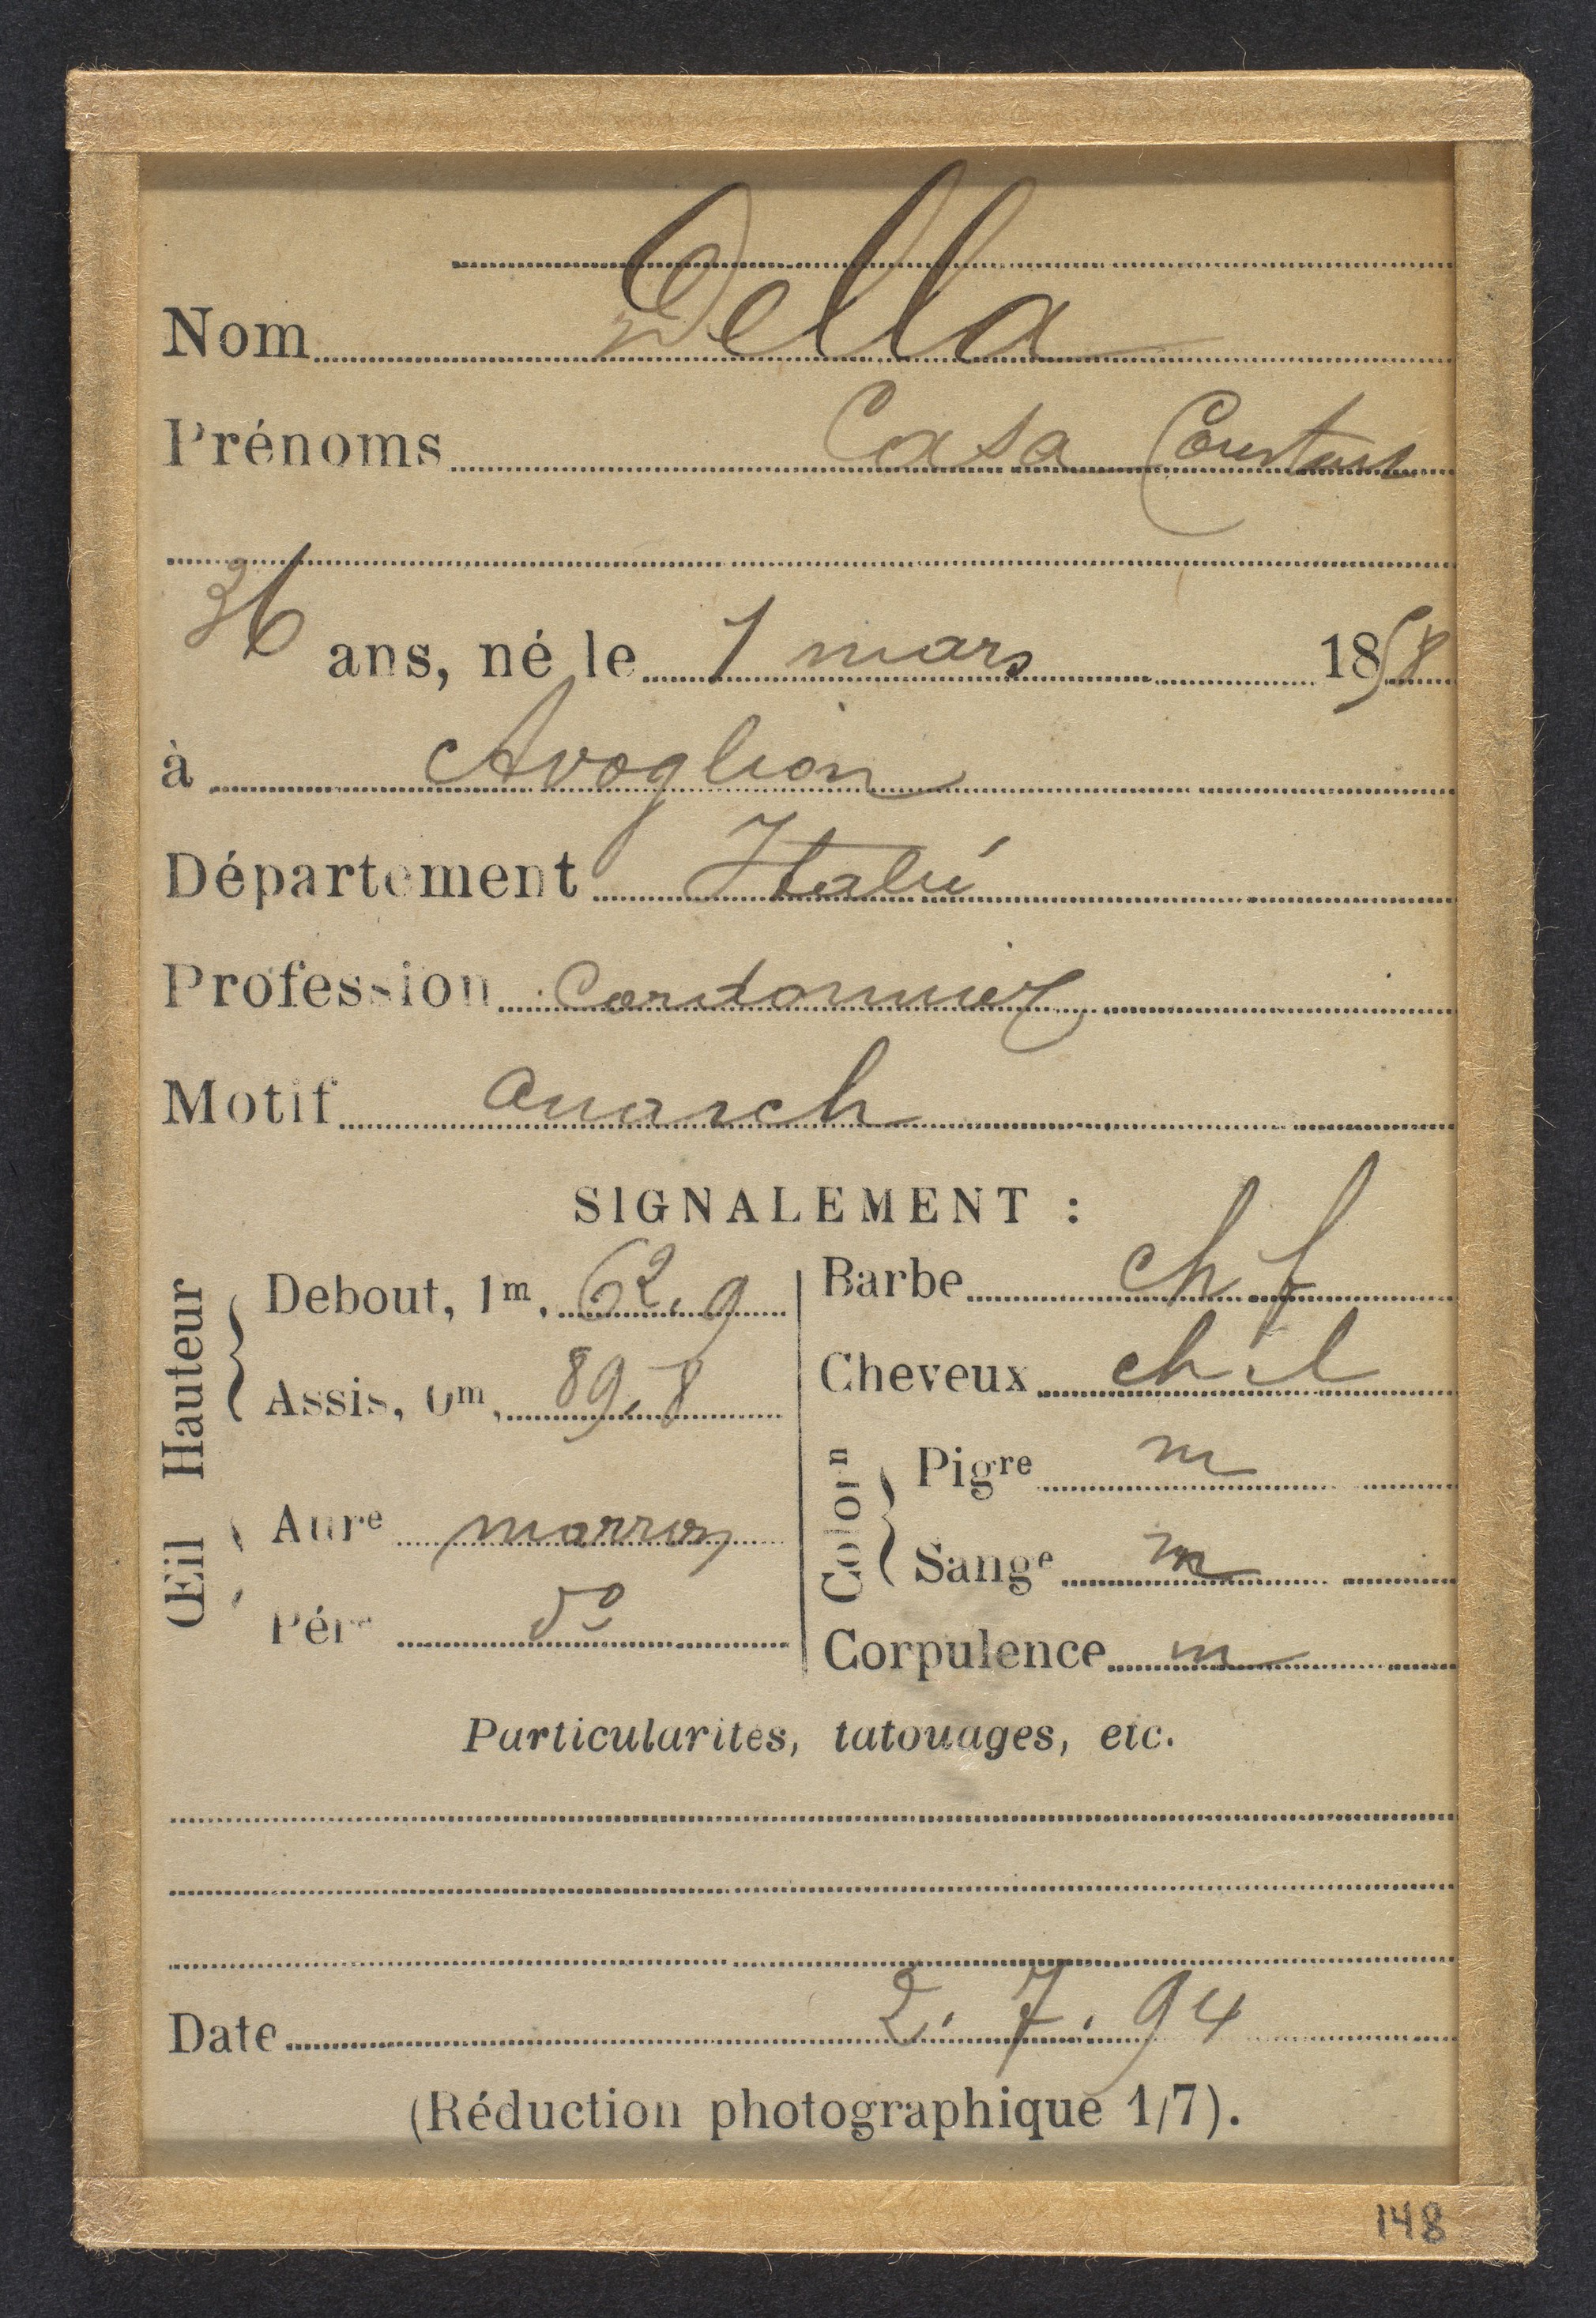 Nom Della
Prénoms Casa
36 ans, né le 1 mars 1858
à Avoglion
Département Italie
Profession Cordonnier
Motif anarch
SIGNALEMENT :
Hauteur
Debout, 1m, 62,9
Assis, 0m, 89,8
Œil
Aure marron
Pére do
Barbe ch. f
Cheveux ch
Colorn
Pigre m
Sange m
Corpulence m
Particularités, tatouages, etc.
Date 2.7.94
(Réduction photographique 1/7).
148